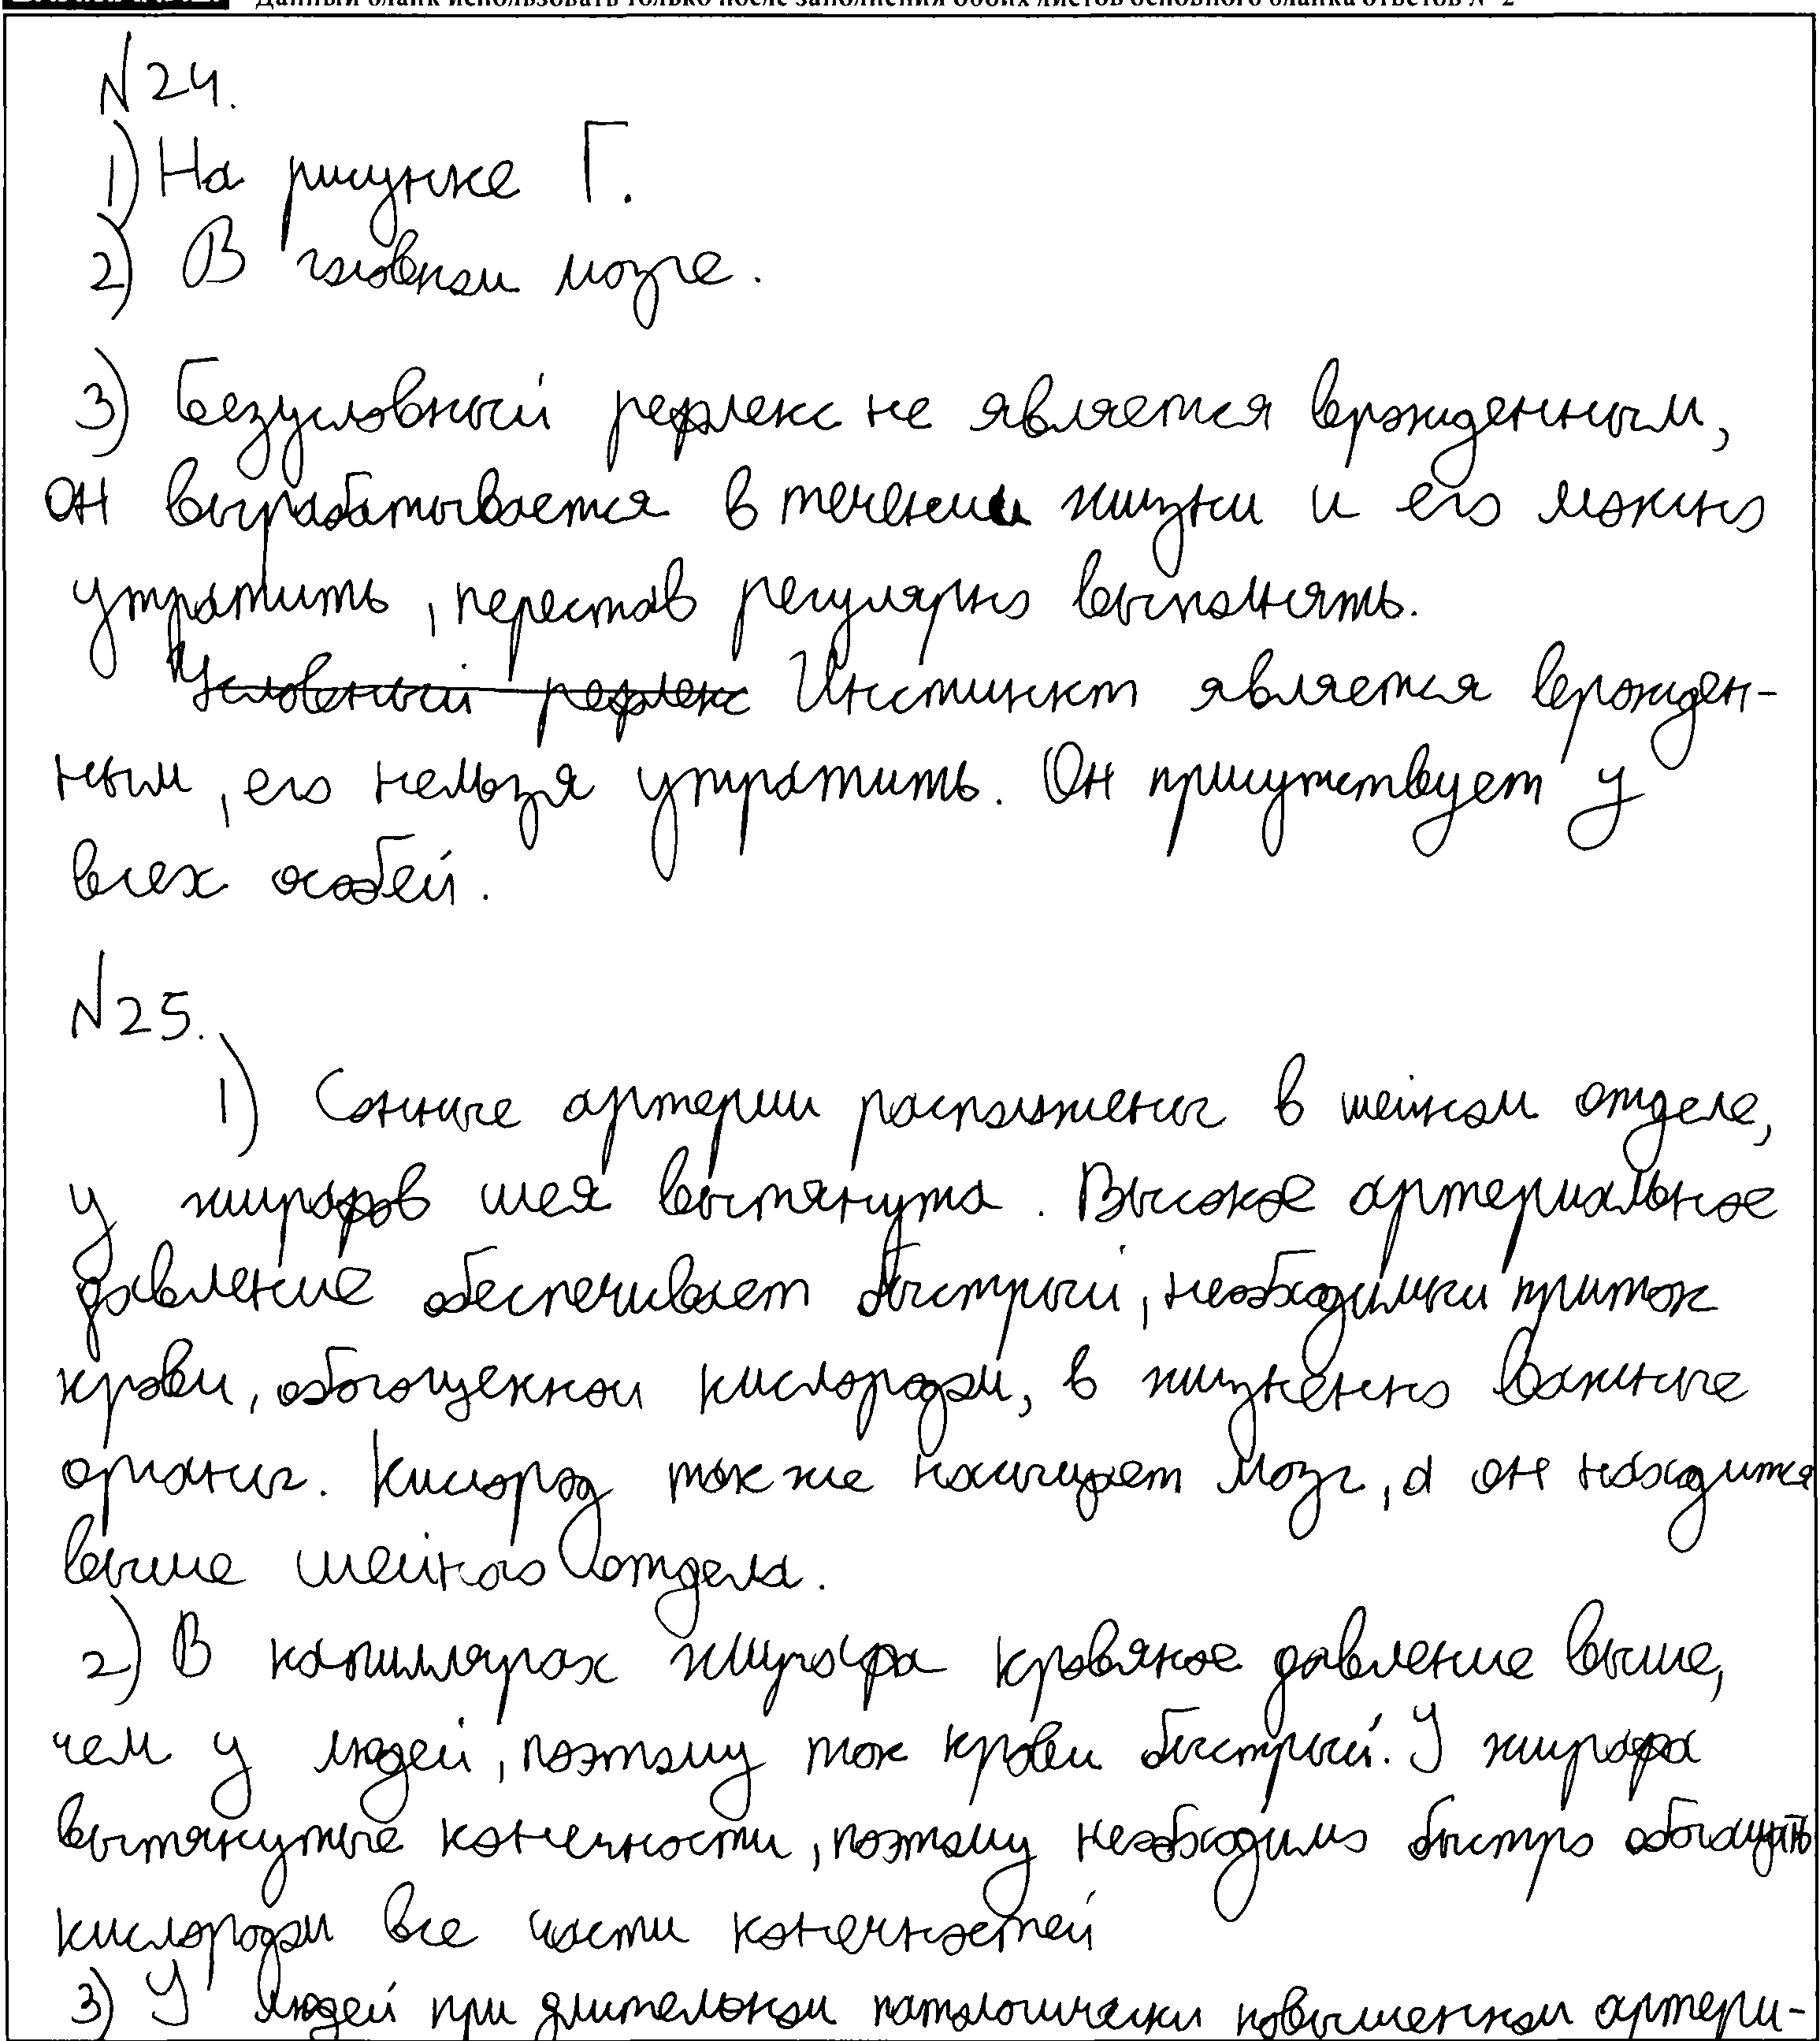 Данный бланк использовать только после заполнения обоих листов основного бланка ответов № 2
N 24.
1) На рисунке Г.
2) В головном мозге.
3) Безусловный рефлекс не является врожденным,
он вырабатывается в течении жизни и его можно
утратить, перестав регулярно выполнять.
Условный рефлекс Инстинкт является врожден-
ным, его нельзя утратить. Он присутствует у
всех особей.
N 25.
1) Сонные артерии расположены в шейном отделе,
у жирафов шея вытянута. Высокое артериальное
давление обеспечивает быстрый, необходимый приток
крови, обогощенной кислородом, в жизненно важные
органы. Кислород так же насыщает мозг, а он находится
выше шейного отдела.
2) В капиллярах жирафа кровяное давление выше,
чем у людей, поэтому ток крови быстрый. У жирафа
вытянутые конечности, поэтому необходимо быстро обогощать
кислородом все части конечностей
3) У людей при длительном патологически повышенном артери-